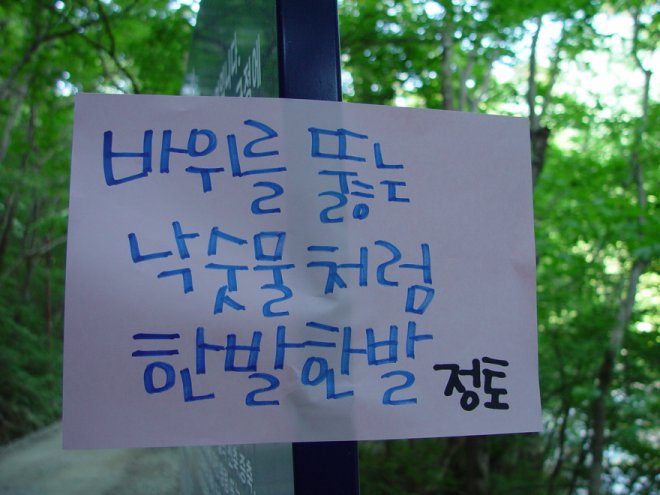 바위를 뚫는
낙숫물처럼
한발한발
정토